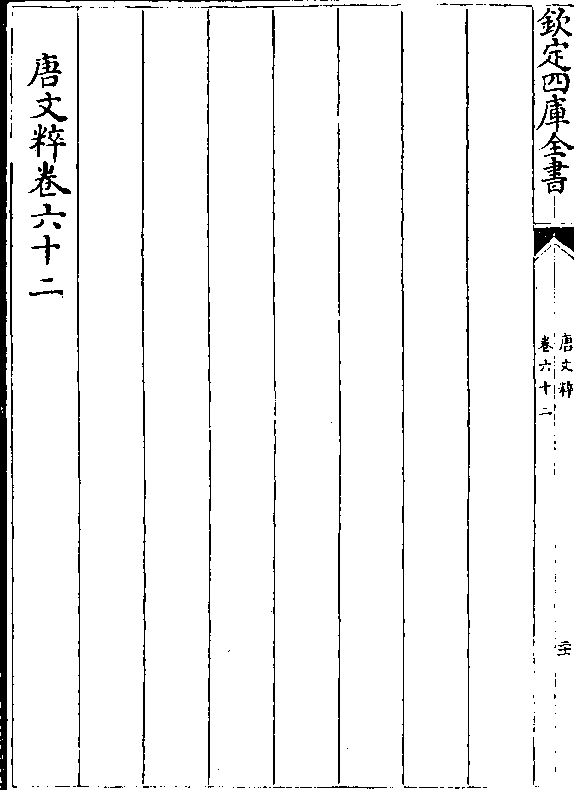 欽定四庫全書
唐文粹
卷六十二
唐文粹卷六十二